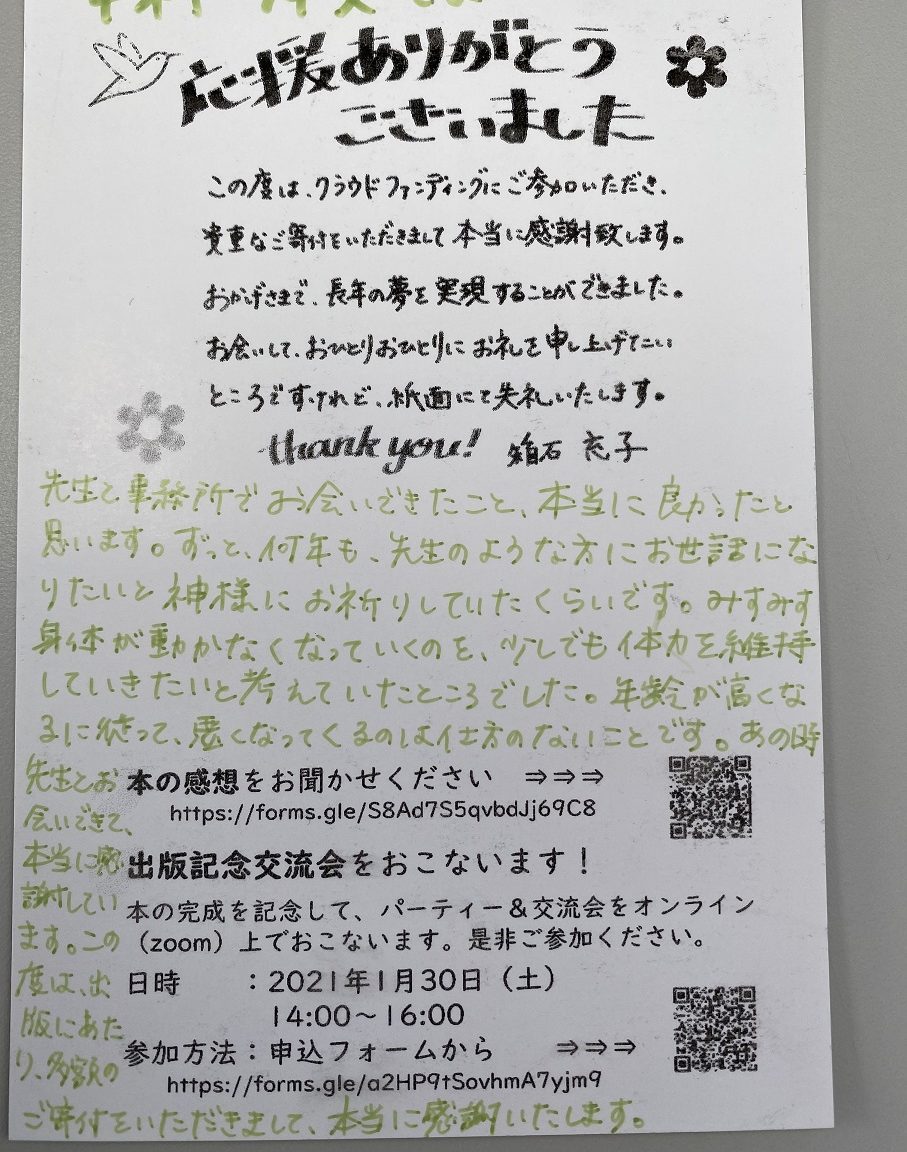 応援ありがとう
ございました
この度は、クラウドファンディングにご参加いただき、
貴重なご寄付をいただきまして本当に感謝致します。
おかげさまで、長年の夢を実現することができました。
お会いして、おひとりおひとりにお礼を申し上げたい
ところですけれど、紙面にて失礼いたします。
thank you! 箱石 充子
先生と事務所でお会いできたこと、本当に良かったと
思います。ずっと、何年も、先生のような方にお世話にな
りたいと神様にお祈りしていたくらいです。みすみす
身体が動かなくなっていくのを、少しでも体力を維持
していきたいと考えていたところでした。年齢が高くな
るに従って、悪くなってくるのは仕方のないことです。あの時
先生とお
会いできて、
本当に感
謝してい
ます。この
度は、出
版にあた
り、多額の
ご寄付をいただきまして、本当に感謝いたします。
本の感想をお聞かせください ⇒⇒⇒
https://forms.gle/S8Ad7S5qvbdJj69C8
出版記念交流会をおこないます！
本の完成を記念して、パーティー＆交流会をオンライン
（zoom）上でおこないます。是非ご参加ください。
日時 ：2021年1月30日（土）
14:00～16:00
参加方法：申込フォームから ⇒⇒⇒
https://forms.gle/a2HP9tSovhmA7yjm9